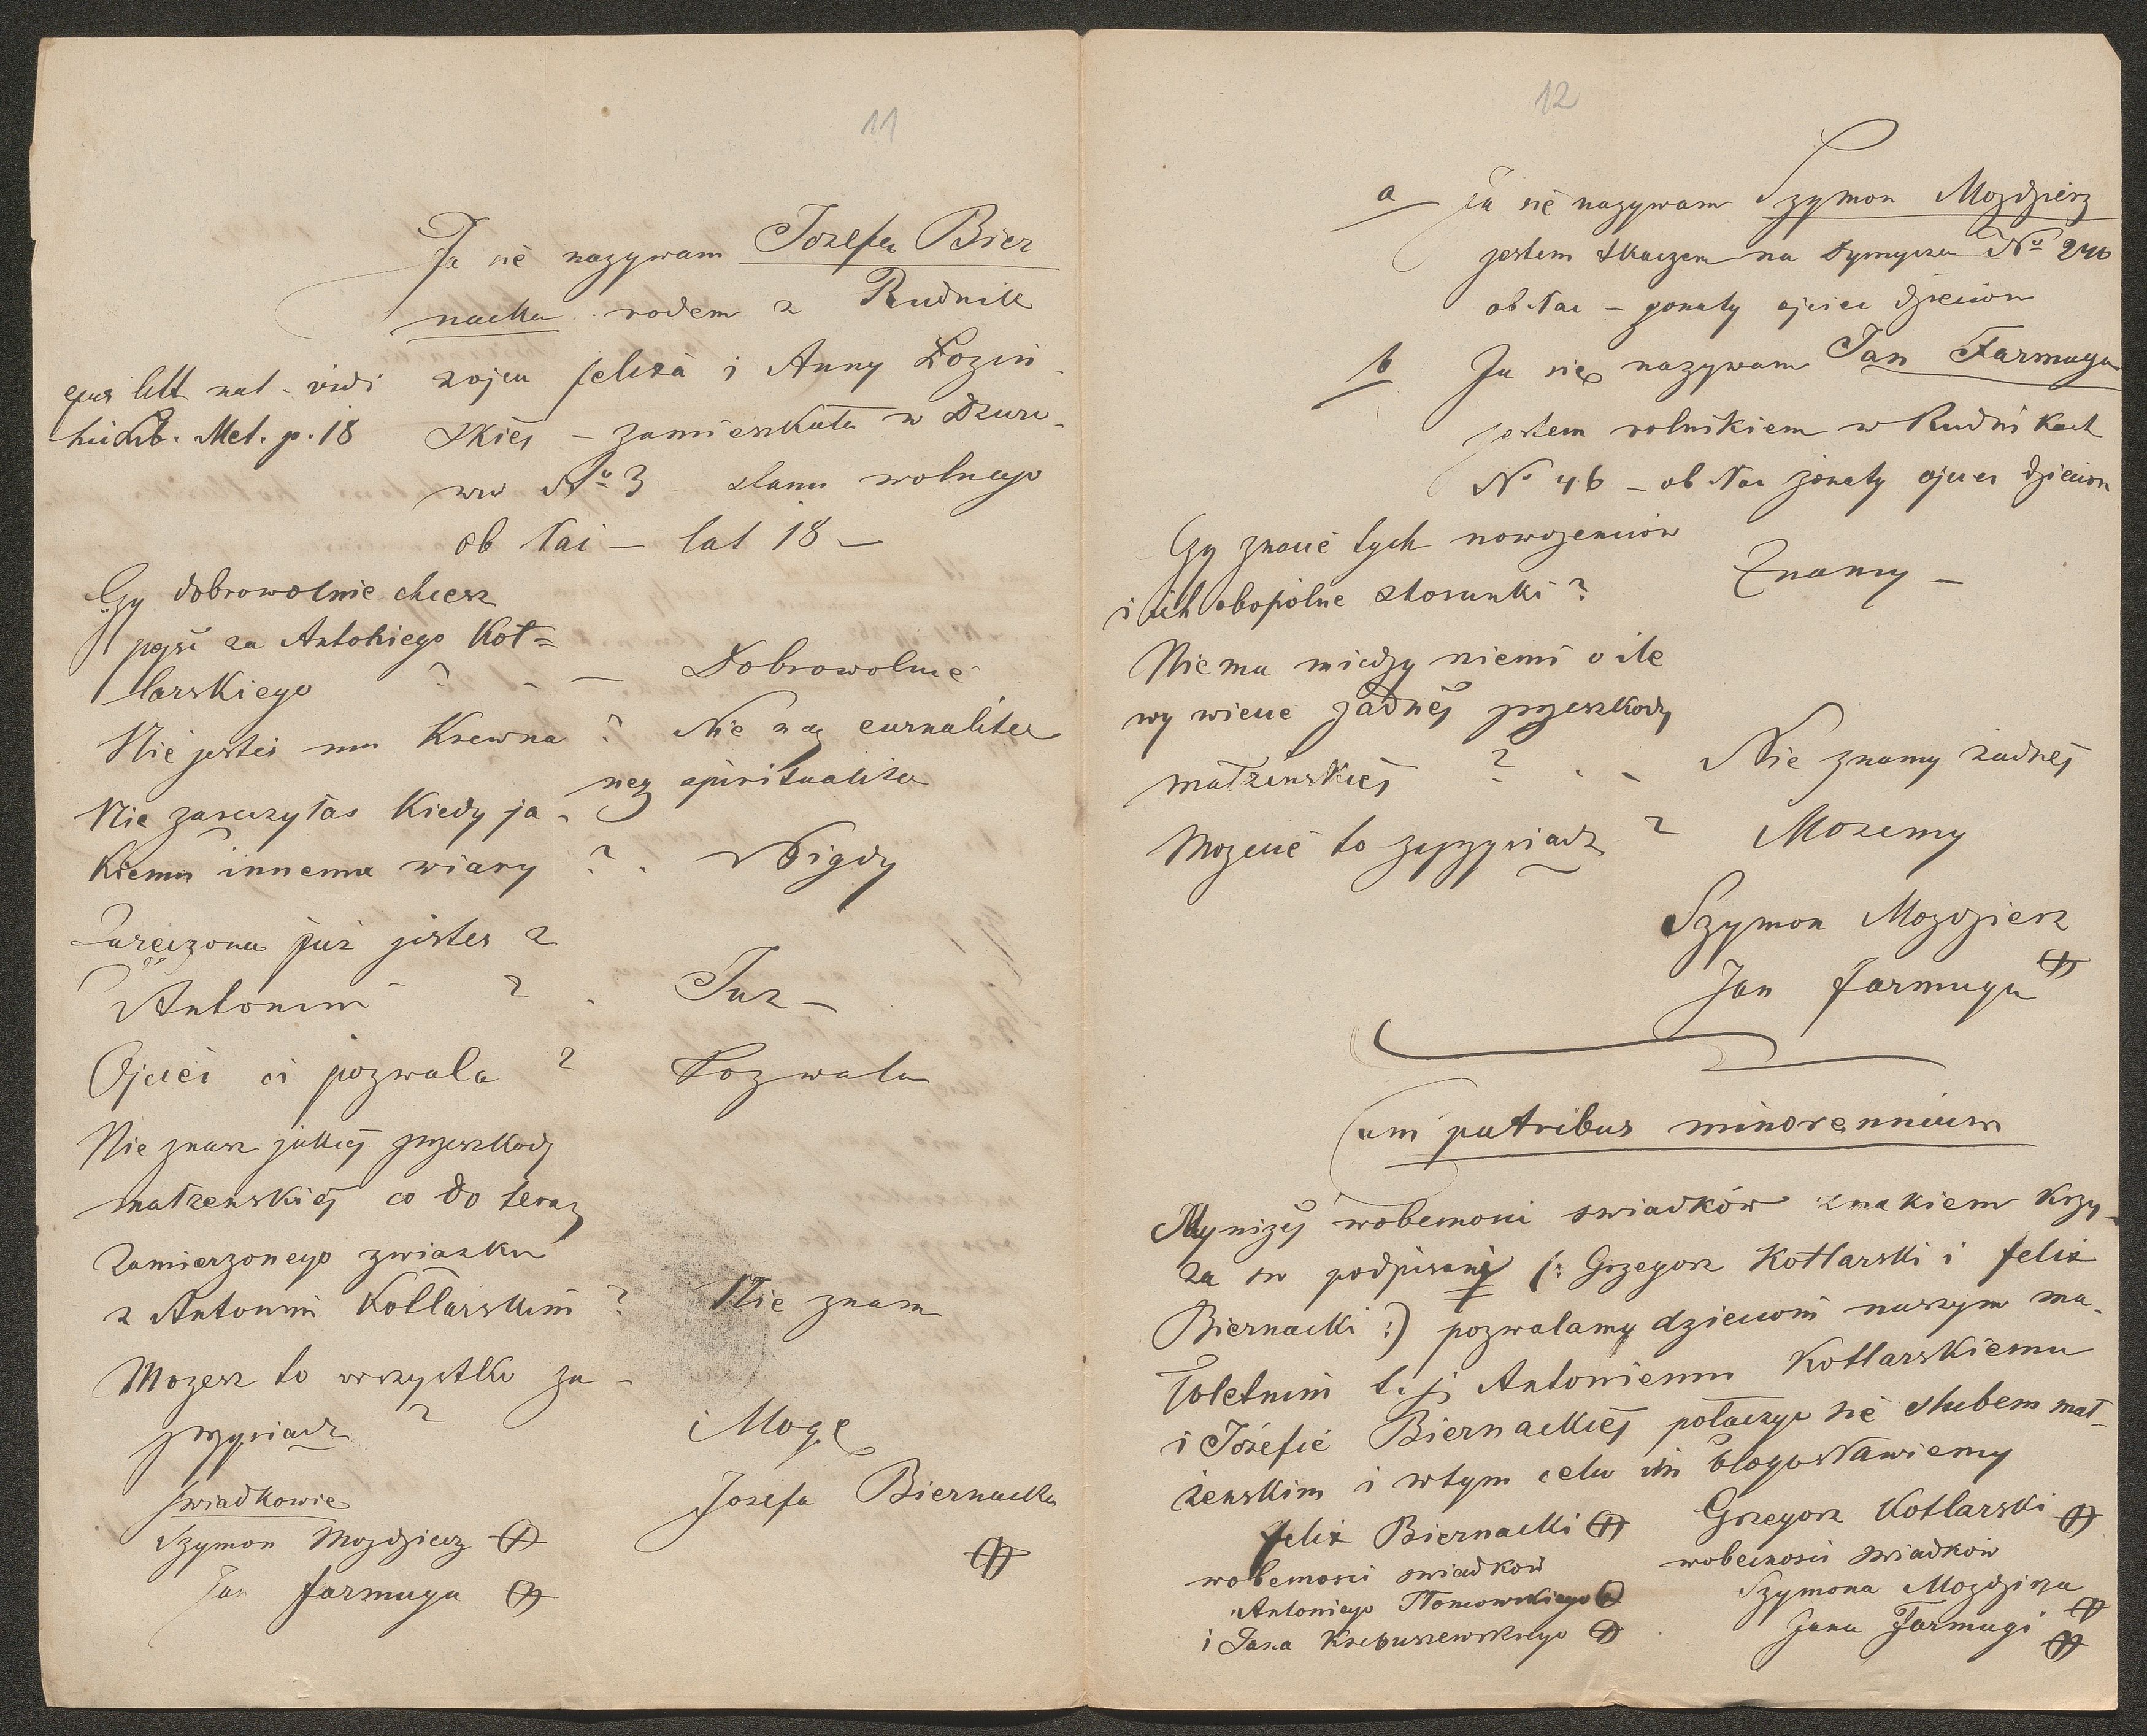 11
Ja sie nazywam Jozefa Bier
nacka rodem z Rudnik
z ojca felixa i Anny Łoziń-
ejus litt nat. vidi
hic Lib. Met. p. 18
skiej – zamieszkała w Dzuro-
wie No 3 – stanu wolnego
ob łac – lat 18 –
Czy dobrowolnie chcesz
pojść za Antoniego Kot=
larskiego ? – – Dobrowolnie
Nie jesteś mu Krewna ? Nie neq carnaliter
neq spiritualiter
Nie zaręczyłas Kiedy ja-
Kiemu innemu wiary ? . Nigdy
Zaręczona już jestes z
Antonim ? . Juz –
Ojciec ci pozwala ? Pozwala
Nie znasz jakiej przeszkody
małzenskiej co do teraz
zamierzonego zwiazku
z Antonim Kotlarskim ? Nie znam
Mozesz to wszystko za-
przysiadz ? Moge
Swiadkowie
Josefa Biernacka
Szymon Mozdzierz
Jan farmuga
12
a Ja się nazywam Szymon Mozdzierz
jestem tkaczem na Dymyczu No 240
ob łac – zonaty ojciec dzieciom
b Ja się nazywam Jan Farmuga
jestem rolnikiem w Rudnikach
No 46 – ob łac zonaty ojciec dzieciom
Czy znacie tych nowozencow
i ich obopólne stosunki ? Znamy –
Nie ma miedzy niemi o ile
wy wiecie żadnej przeszkody
małzenskiej ? . – Nie znamy zadnej
Mozecie to zaprzysiadz ? Mozemy
Szymon Mozdzierz
Jan farmuga
Cum patribus minorennium
My nizej wobecnosci swiadków znakiem krzy-
za sw podpisani (: Grzegorz Kotlarski i felix
Biernacki :) pozwalamy dzieciom naszym ma-
łoletnim t. j. Antoniemu Kotlarskiemu
i Józefie Biernackiej połaczyc się slubem mał-
żenskim i w tym celu im błogosławiemy
felix Biernacki
Grzegorz Kotlarski
wobecnosci swiadkow
Antoniego
i Jana
wobecnosci swiadkow
Szymona Mozdzirza
Jana Farmugi